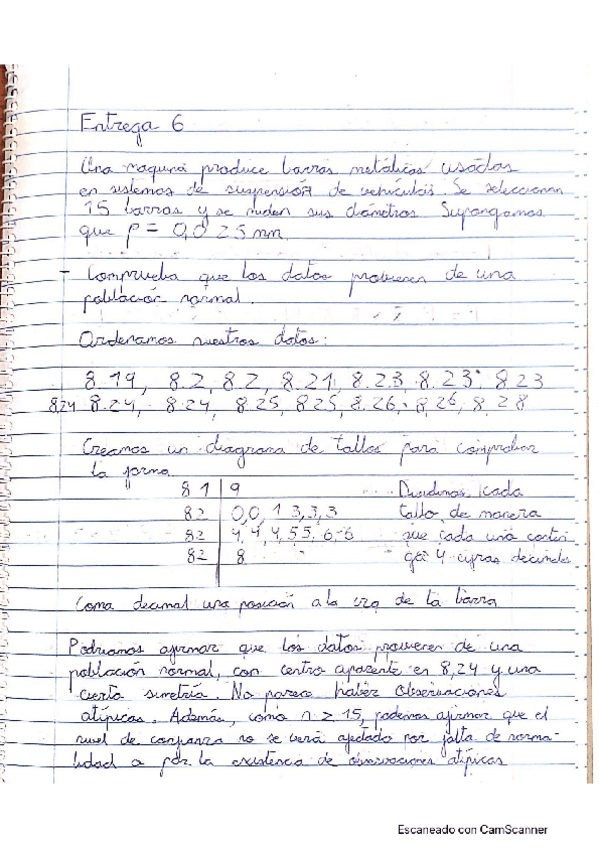 Entrega 6
Una maquina produce barras metálicas usadas
en sistemas de suspensión de vehículos. Se seleccionan
15 barras y se miden sus diámetros Supongamos
que ρ = 0,0 25 mm
- Comprueba que los datos provienen de una
población normal.
Ordenamos nuestros datos:
8.19, 8.2, 8.2, 8.21, 8.23 8.23 8.23
8.24 8.24, 8.24, 8.25, 8.25, 8.26, 8.26, 8.28
Creamos un diagrama de tallos para comprobar
la forma
81 | 9 Dividimos cada
82 | 0,0, 1 3,3,3 tallo de manera
82 | 4, 4, 4, 5 5, 6, 6 que cada uno conten
82 | 8 ga 4 cifras decimales
Coma decimal una posición a la izq de la barra
Podriamos afirmar que los datos provienen de una
población normal, con centro aparente en 8,24 y una
cierta simetría. No parece haber observaciones
atípicas. Además, como n ≥ 15, podemos afirmar que el
nivel de confianza no se verá afectado por falta de norma-
lidad o por la existencia de observaciones atípicas
Escaneado con CamScanner